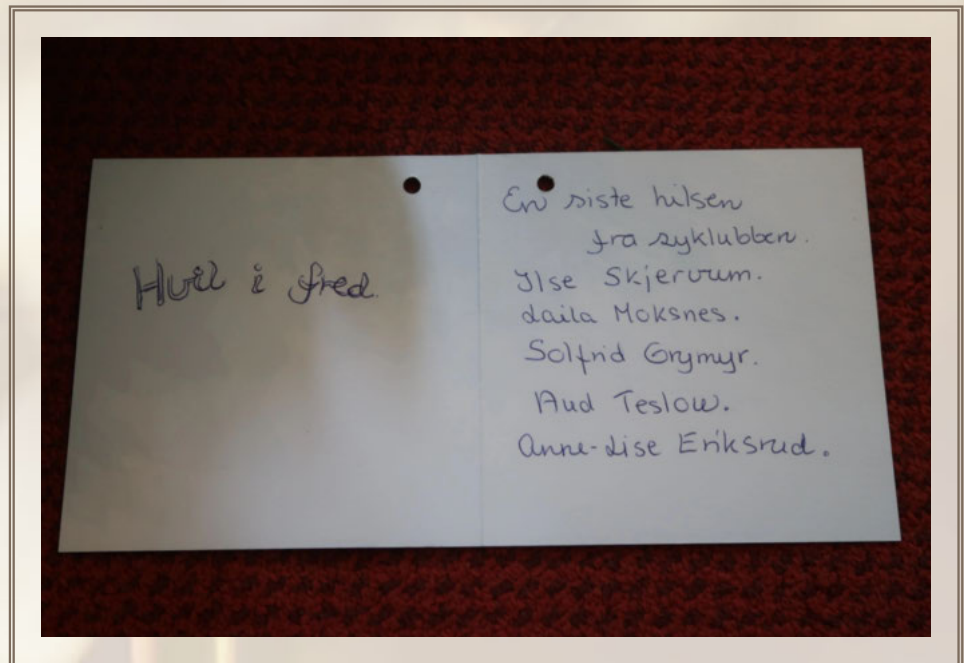 Hvil i fred.
En siste hilsen
fra syklubben.
Ilse Skjervum.
Laila Moksnes.
Solfrid Grymyr.
Aud Teslow.
Anne-Lise Eriksrud.